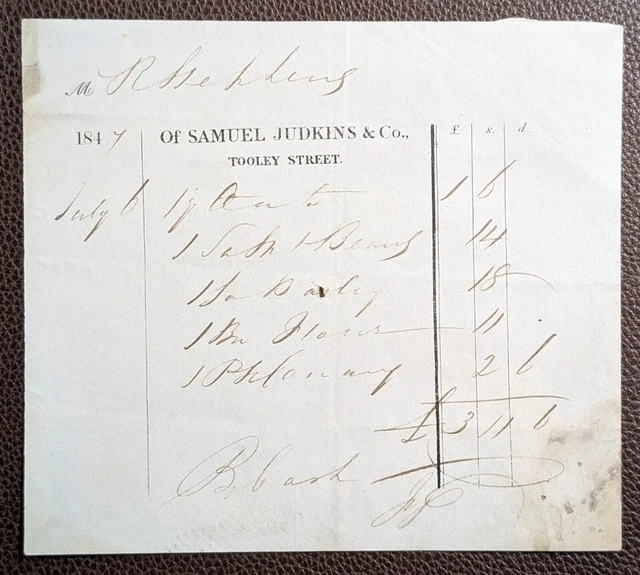 M R Stephens
1847 Of SAMUEL JUDKINS & Co., £ s. d.
TOOLEY STREET.
July 6 1 qr Oats 1 6
1 Beans 14
1 Barley 18
1 Bu Flour 11
1 Pk Canary 2 6
£ 3 11 6
By Cash